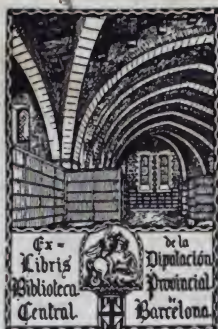 Ex-
Libris
Biblioteca
Central
de la
Diputación
Provincial
de
Barcelona